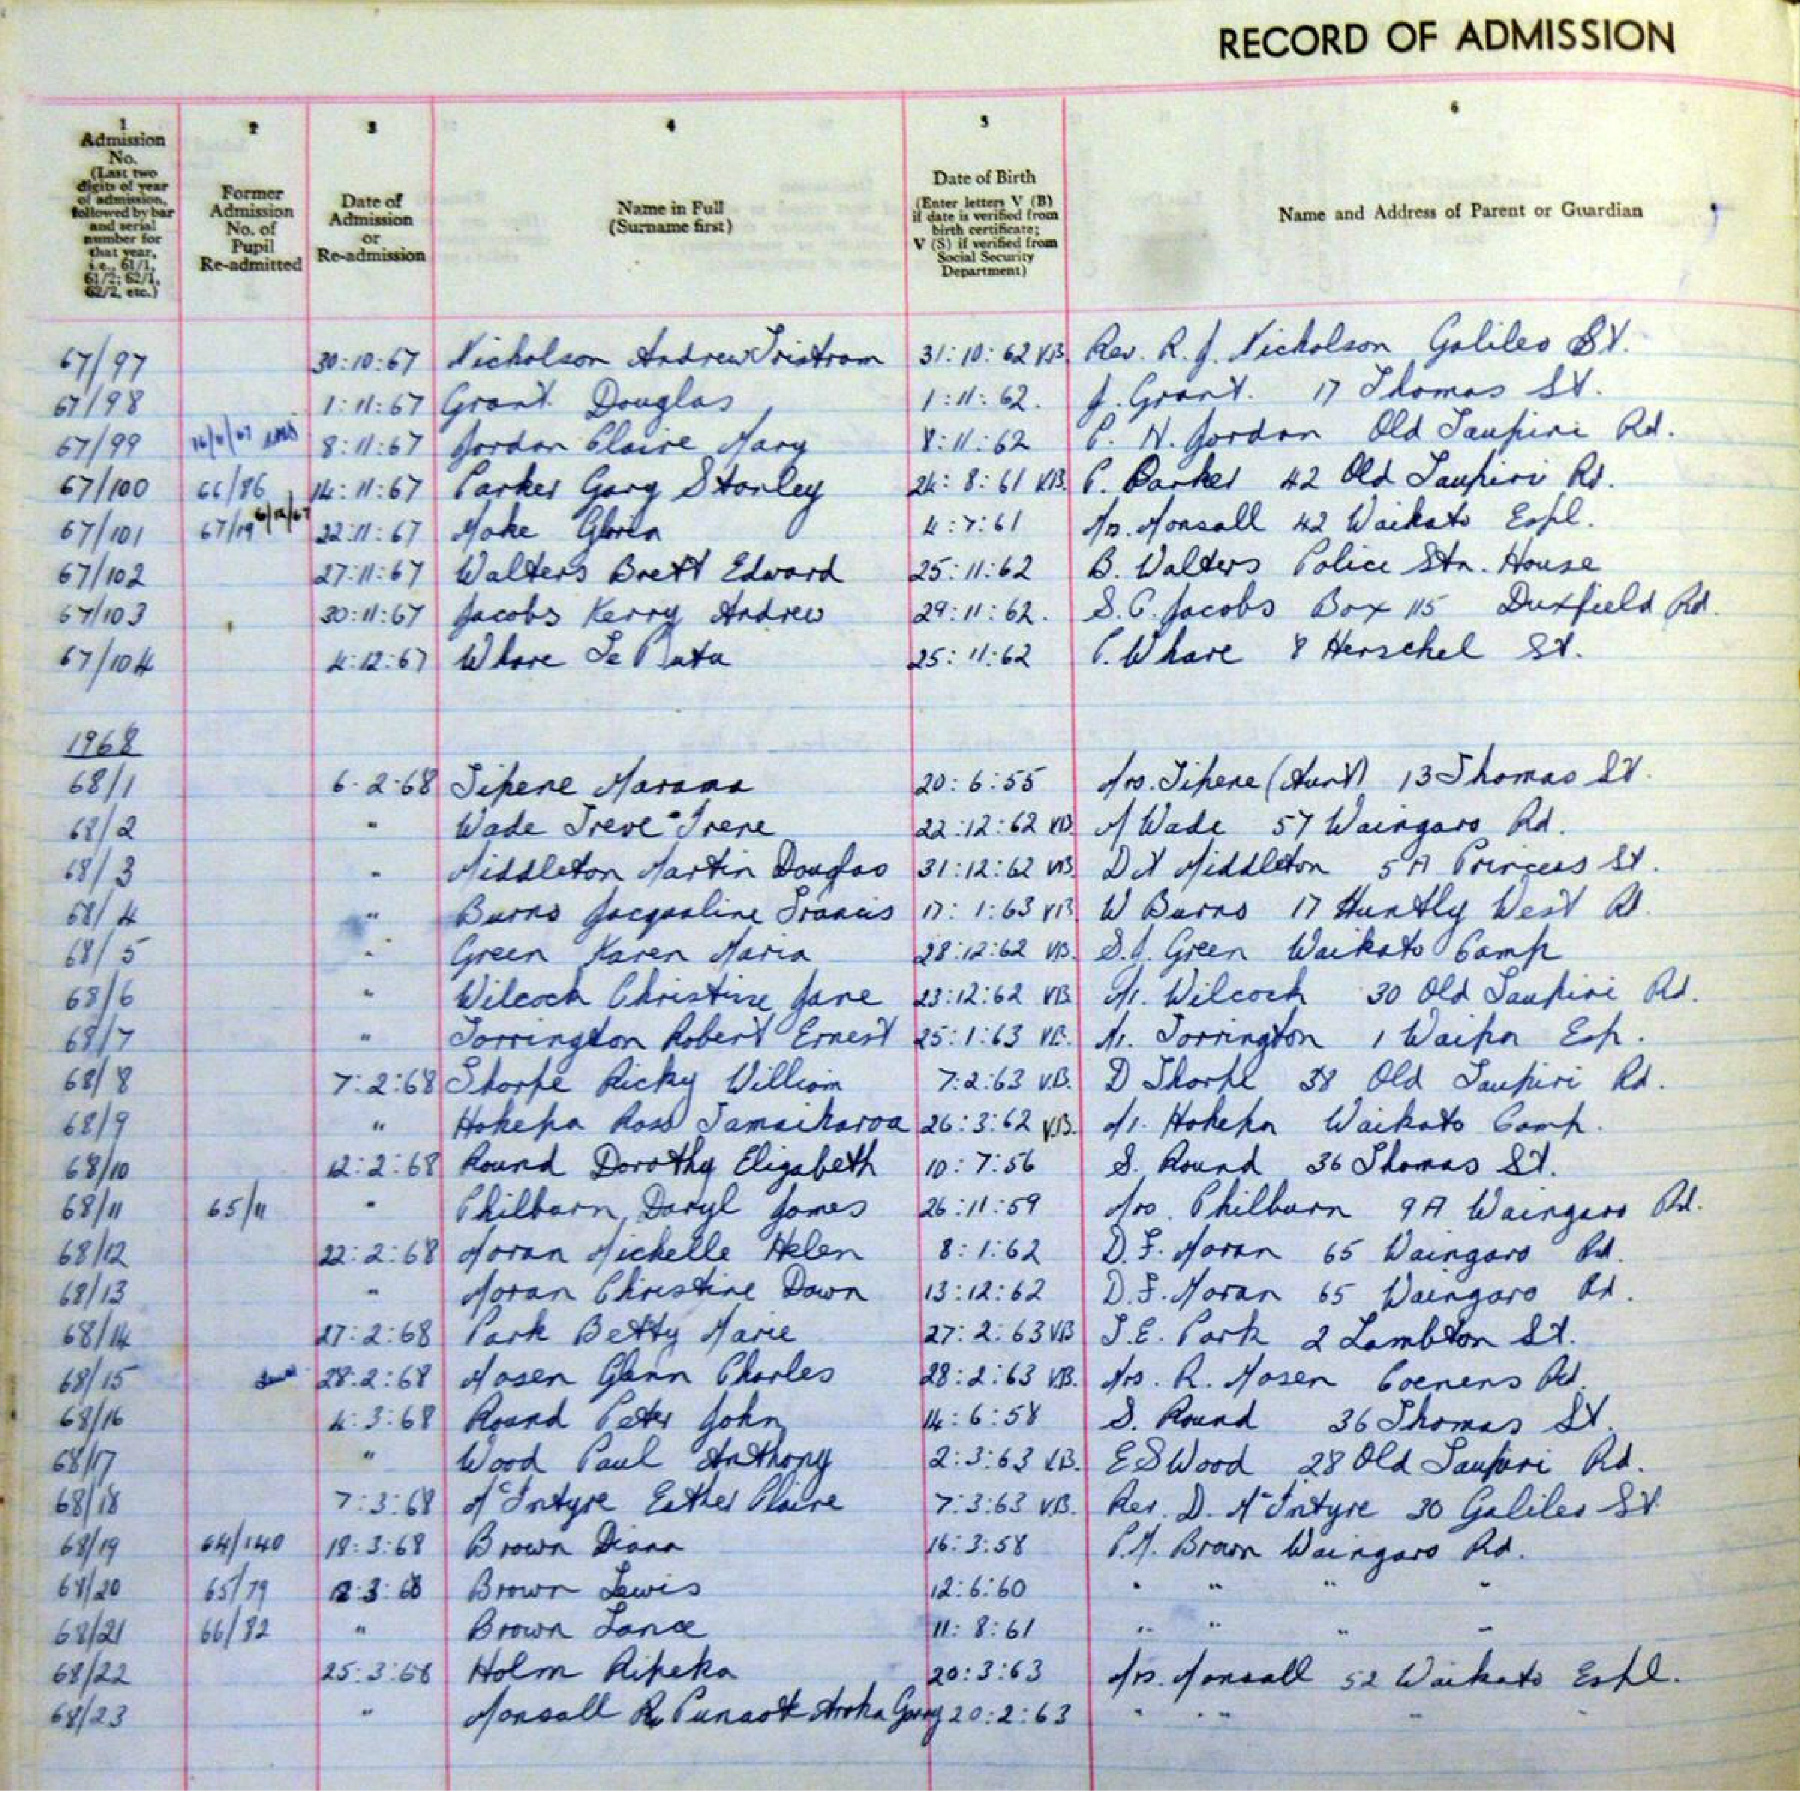 RECORD OF ADMISSION
1
Admission
No.
(Last two
digits of year
of admission,
followed by bar
and serial
number for
that year,
i.e., 61/1,
61/2; 62/1,
62/2, etc.)
2
Former
Admission
No. of
Pupil
Re-admitted
3
Date of
Admission
or
Re-admission
4
Name in Full
(Surname first)
5
Date of Birth
(Enter letters V (B)
if date is verified from
birth certificate;
V (S) if verified from
Social Security
Department)
6
Name and Address of Parent or Guardian
67/97 30:10:67 Nicholson Andrew Tristram 31:10:62 V.B. Rev. R. J. Nicholson Galileo St.
67/98 1:11:67 Grant Douglas 1:11:62. J. Grant. 17 Thomas St.
67/99 8:11:67 Jordan Claire Mary 8:11:62 P. H. Jordan Old Taupiri Rd.
67/100 66/86 14:11:67 Parker Gary Stanley 24:8:61 V.B. P. Parker 42 Old Taupiri Rd.
67/101 67/19 6/12/67 22:11:67 Moke Gloria 4:7:61 Mrs. Monsall 42 Waikato Espl.
67/102 27:11:67 Walters Brett Edward 25:11:62 B. Walters Police Stn. House
67/103 30:11:67 Jacobs Kerry Andrew 29:11:62. S. C. Jacobs Box 115 Duxfield Rd.
67/104 4:12:67 Whare Te 25:11:62 P. Whare 8 Herschel St.
1968
68/1 6-2:68 Tipene Marama 20:6:55 Mrs. Tipene (Aunt) 13 Thomas St.
68/2 " Wade Treve Irene 22:12:62 VB M Wade 57 Waingaro Rd.
68/3 " Middleton Martin Douglas 31:12:62 VB. D Middleton 5A Princess St.
68/4 " Burns Jacqueline Francis 17:1:63 VB W Burns 17 Huntly West Rd.
68/5 " Green Karen Maria 28:12:62 VB. S. J. Green Waikato Camp
68/6 " Wilcock Christine Jane 23:12:62 VB. Mr. Wilcock 30 Old Taupiri Rd.
68/7 " Torrington Robert Ernest 25:1:63 VB. Mr. Torrington 1 Waipa Esp.
68/8 7:2:68 Thorpe Ricky William 7:2:63 V.B. D Thorpe 38 Old Taupiri Rd.
68/9 " Hokepa Ross Tamaikaroa 26:3:62 V.B. Mr. Hokepa Waikato Camp.
68/10 12:2:68 Round Dorothy Elizabeth 10:7:56 S. Round 36 Thomas St.
68/11 65/11 " Philburn, Daryl James 26:11:59 Mrs. Philburn 9A Waingaro Rd.
68/12 22:2:68 Moran Michelle Helen 8:1:62 D. F. Moran 65 Waingaro Rd.
68/13 " Moran Christine Dawn 13:12:62 D. F. Moran 65 Waingaro Rd.
68/14 27:2:68 Park Betty Marie 27:2:63 VB T. E. Park 2 Lambton St.
68/15 28:2:68 Mosen Glenn Charles 28:2:63 VB. Mrs. R. Mosen Coenens Rd.
68/16 4:3:68 Round Peter John 14:6:58 S. Round 36 Thomas St.
68/17 " Wood Paul Anthony 2:3:63 V.B. E S Wood 28 Old Taupiri Rd.
68/18 7:3:68 McIntyre Esther Claire 7:3:63 V.B. Rev. D. McIntyre 30 Galileo St
68/19 64/140 18:3:68 Brown Diana 16:3:58 P. M. Brown Waingaro Rd.
68/20 65/79 3:68 Brown Lewis 12:6:60 " " " "
68/21 66/82 " Brown Lance 11:8:61 " " " "
68/22 25:3:68 Holm Ripeka 20:3:63 Mrs. Monsall 52 Waikato Espl.
68/23 " Monsall Aroha Garry 20:2:63 " " " "